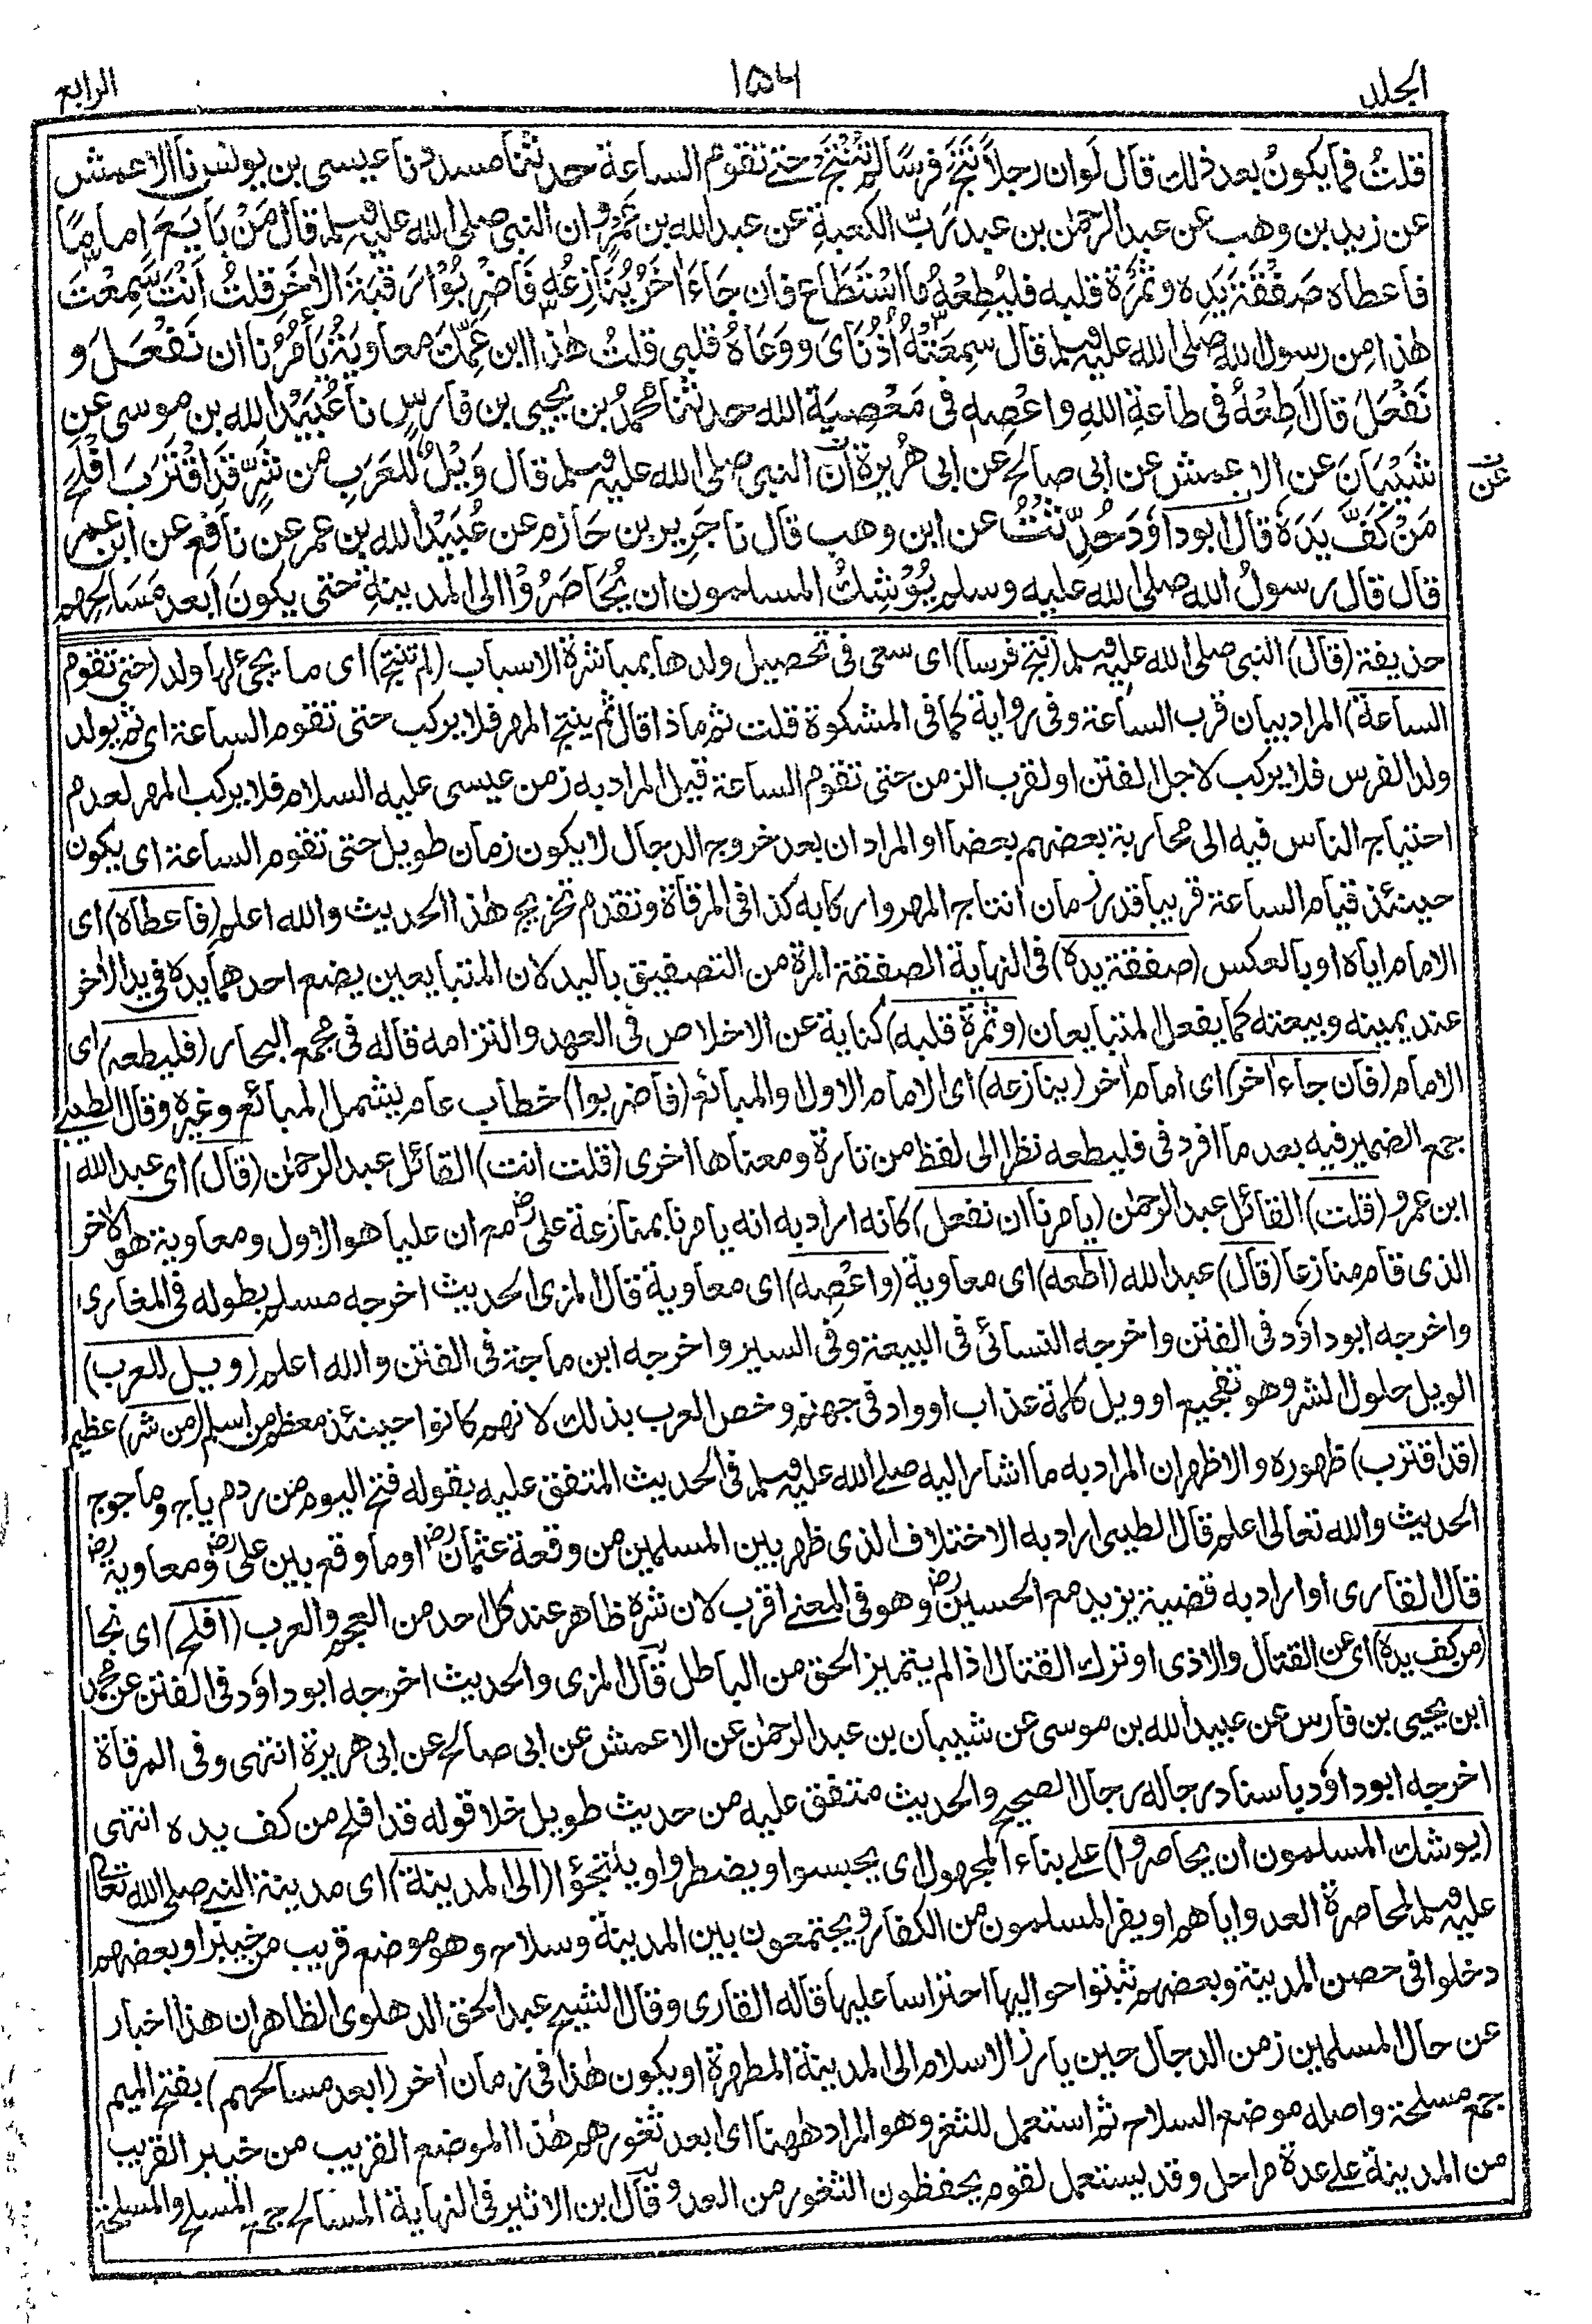 الجلد
١٥٦
الرابع
قلتُ فما يكونُ بعد ذلك قال لَوان رجلاً نَتَجَ فرسًا لم تُنْتَجْ حتى تقومُ الساعة حدثنا مسدد نا عيسى بن يونس نا الاعمش
عن زيد بن وهب عن عبد الرحمٰن بن عبد رَبّ الكعبةِ عن عبد الله بن عَمْرٍو ان النبي صلى الله عليه وسلم قال مَنْ بَايَعَ اِمامًا
فاعطاه صَفْقَةَ يَدِه وثمْرَةَ قلبِه فليُطِعْهُ مَا اسْتَطَاعَ فان جَاءَ اٰخَرُ يُنَازِعُه فَاضْرِبُوْا رَقبَةَ الاٰخَرِ قلتُ اَنْتَ سَمِعْتَ
هٰذا مِن رسول الله صلى الله عليه وسلم قال سِمعَتْهُ اُذُنَايَ ووَعَاهُ قلبي قلتُ هٰذا ابن عَمِّكَ معاويةُ يَأمُرُنا ان نَفْعَلَ و
نَفْعَلَ قال اَطِعْهُ في طاعةِ اللهِ واعْصِهِ في مَعْصِيَةِ الله حدثنا محمدُ بن يحيى بن فَارسٍ نا عُبَيْدُ الله بن موسى عن
شَيْبَانَ عن الاعمش عن ابى صالح عن ابى هُرَيرةَ اَنّ النبي صلى الله عليه وسلم قال وَيْلٌ لّلعَرَبِ من شَرٍّ قَدِ اقْتَرَبَ اَفْلَحَ
عن
مَنْ كَفَّ يَدَهُ قال ابو داوٗد حُدِّثْتُ عن ابن وهب قال نا جَرِيْر بن حَازم عن عُبَيْد الله بن عمر عن نَافع عن ابن عمر
قال قال رسولُ الله صلى الله عليه وسلم يُوْشِكُ المسلمون ان يُحَاصَرُوْا الى المدينةِ حتى يكونَ اَبعد مَسَالِحِهم
حذيفة (قال) النبي صلى الله عليه وسلم (نتج فرسا) اى سعى فى تحصيل ولدها بمباشرة الاسباب (لم تنتج) اى ما يجئ لها ولد (حتى تقوم
الساعة) المراد بيان قرب الساعة وفى رواية كما فى المشكوة قلت ثم ماذا قال ثم ينتج المهر فلا يركب حتى تقوم الساعة اى ثم يولد
ولد الفرس فلا يركب لاجل الفتن او لقرب الزمن حتى تقوم الساعة قيل المراد به زمن عيسى عليه السلام فلا يركب المهر لعدم
احتياج الناس فيه الى محاربة بعضهم بعضا او المراد ان بعد خروج الدجال لا يكون زمان طويل حتى تقوم الساعة اى يكون
حينئذ قيام الساعة قريبا قدر زمان انتاج المهر واركابه كذا فى المرقاة وتقدم تخريج هٰذا الحديث والله اعلم (فاعطاه) اى
الامام اياه او بالعكس (صفقة يده) فى النهاية الصفقة المرة من التصفيق باليد لان المتبايعين يضع احدهما يده فى يد الاٰخر
عند يمينه وبيعته كما يفعل المتبايعان (وثمرة قلبه) كناية عن الاخلاص فى العهد والتزامه قاله فى مجمع البحار (فليطعه) اى
الامام (فان جاء اٰخر) اى امام اٰخر (ينازعه) اى الامام الاول والمبائع (فاضربوا) خطاب عام يشمل المبائع وغيره وقال الطيبى
جمع الضمير فيه بعد ما افرد فى فليطعه نظرا الى لفظ من تارة ومعناها اخرى (قلت انت) القائل عبد الرحمٰن (قال) اى عبد الله
ابن عمرو (قلت) القائل عبد الرحمٰن (يامرنا ان نفعل) كانه اراد به انه يامرنا بمنازعة على رض مع ان عليا هو الاول ومعاوية هو الاٰخر
الذى قام منازعا (قال) عبد الله (اطعه) اى معاوية (واعْصِه) اى معاوية قال المزى الحديث اخرجه مسلم بطوله فى المغازى
واخرجه ابو داوٗد فى الفتن واخرجه النسائى فى البيعة وفى السير واخرجه ابن ماجة فى الفتن والله اعلم (ويل للعرب)
الويل حلول الشر وهو تفجيع او ويل كلمة عذاب او واد فى جهنم وخص العرب بذلك لانهم كانوا حينئذ معظم من اسلم (من شر) عظيم
(قد اقترب) ظهوره والاظهر ان المراد به ما اشار اليه صلى الله عليه وسلم فى الحديث المتفق عليه بقوله فتح اليوم من ردم ياجوج وماجوج
الحديث والله تعالى اعلم قال الطيبى اراد به الاختلاف الذى ظهر بين المسلمين من وقعة عثمان رض او ما وقع بين على رض ومعاوية رض
قال القارى او اراد به قضية يزيد مع الحسين رض وهو فى المعنى اقرب لان شره ظاهر عند كل احد من العجم والعرب (افلح) اى نجا
(من كف يده) اى عن القتال والاذى او ترك القتال اذا لم يتميز الحق من الباطل قال المزى والحديث اخرجه ابو داوٗد فى الفتن عن محمد
ابن يحيى بن فارس عن عبيد الله بن موسى عن شيبان بن عبد الرحمٰن عن الاعمش عن ابى صالح عن ابى هريرة انتهى وفى المرقاة
اخرجه ابو داوٗد باسناد رجاله رجال الصحيح والحديث متفق عليه من حديث طويل خلا قوله قد افلح من كف يده انتهى
(يوشك المسلمون ان يحاصروا) على بناء المجهول اى يحبسوا ويضطروا ويلتجؤا (الى المدينة) اى مدينة النبى صلى الله تعالى
عليه وسلم لمحاصرة العدو اياهم او يفر المسلمون من الكفار ويجتمعون بين المدينة وسلاح وهو موضع قريب من خيبر او بعضهم
دخلوا فى حصن المدينة وبعضهم ثبتوا حواليها احتراسا عليها قاله القارى وقال الشيخ عبد الحق الدهلوى الظاهر ان هذا اخبار
عن حال المسلمين زمن الدجال حين يارز الاسلام الى المدينة المطهرة او يكون هٰذا فى زمان اٰخر (ابعد مسالحهم) بفتح الميم
جمع مسلحة واصله موضع السلاح ثم استعمل للثغر وهو المراد هٰهنا اى ابعد ثغورهم هٰذا الموضع القريب من خيبر القريب
من المدينة على عدة مراحل وقد يستعمل لقوم يحفظون الثغور من العدو وقال ابن الاثير فى النهاية المسالح جمع المسلح والمسلحة